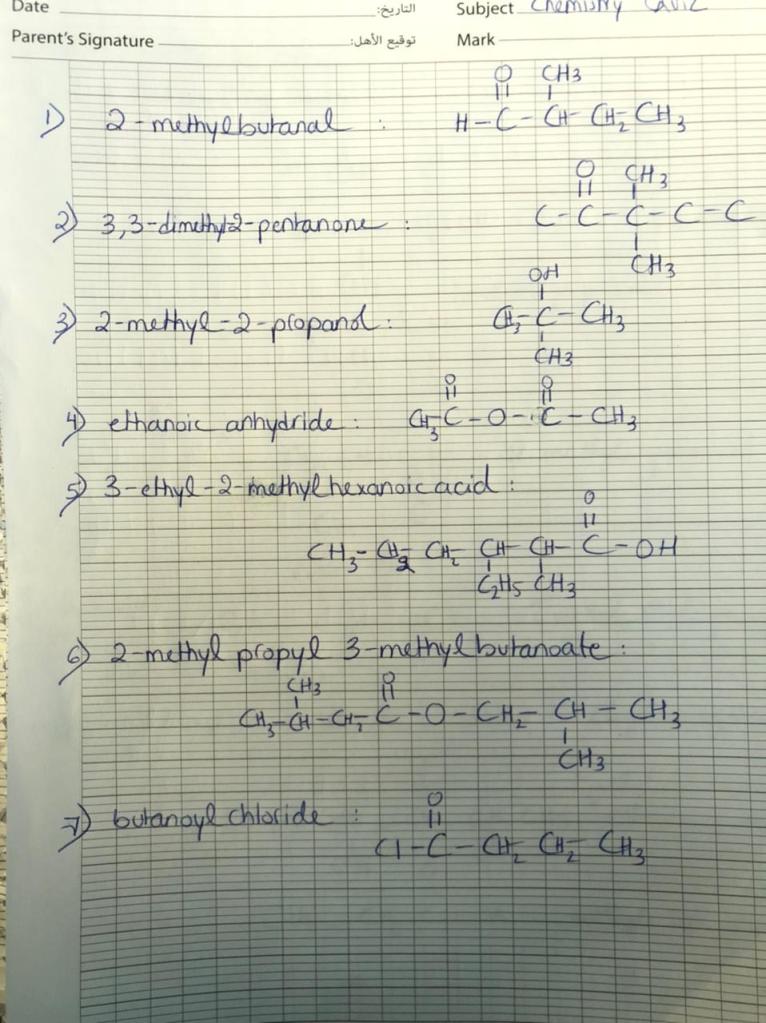 Date التاريخ: Subject Chemistry
Parent's Signature توقيع الأهل: Mark
O CH3
1) 2-methylbutanal : H-C-CH-CH2-CH3
O CH3
2) 3,3-dimethyl-2-pentanone : C-C-C-C-C
CH3
OH
3) 2-methyl-2-propanol : CH3-C-CH3
CH3
O O
4) ethanoic anhydride : CH3-C-O-C-CH3
5) 3-ethyl-2-methylhexanoic acid :
O
CH3-CH2-CH2-CH-CH-C-OH
C2H5 CH3
6) 2-methyl propyl 3-methylbutanoate :
CH3 O
CH3-CH-CH2-C-O-CH2-CH-CH3
CH3
7) butanoyl chloride :
O
Cl-C-CH2-CH2-CH3